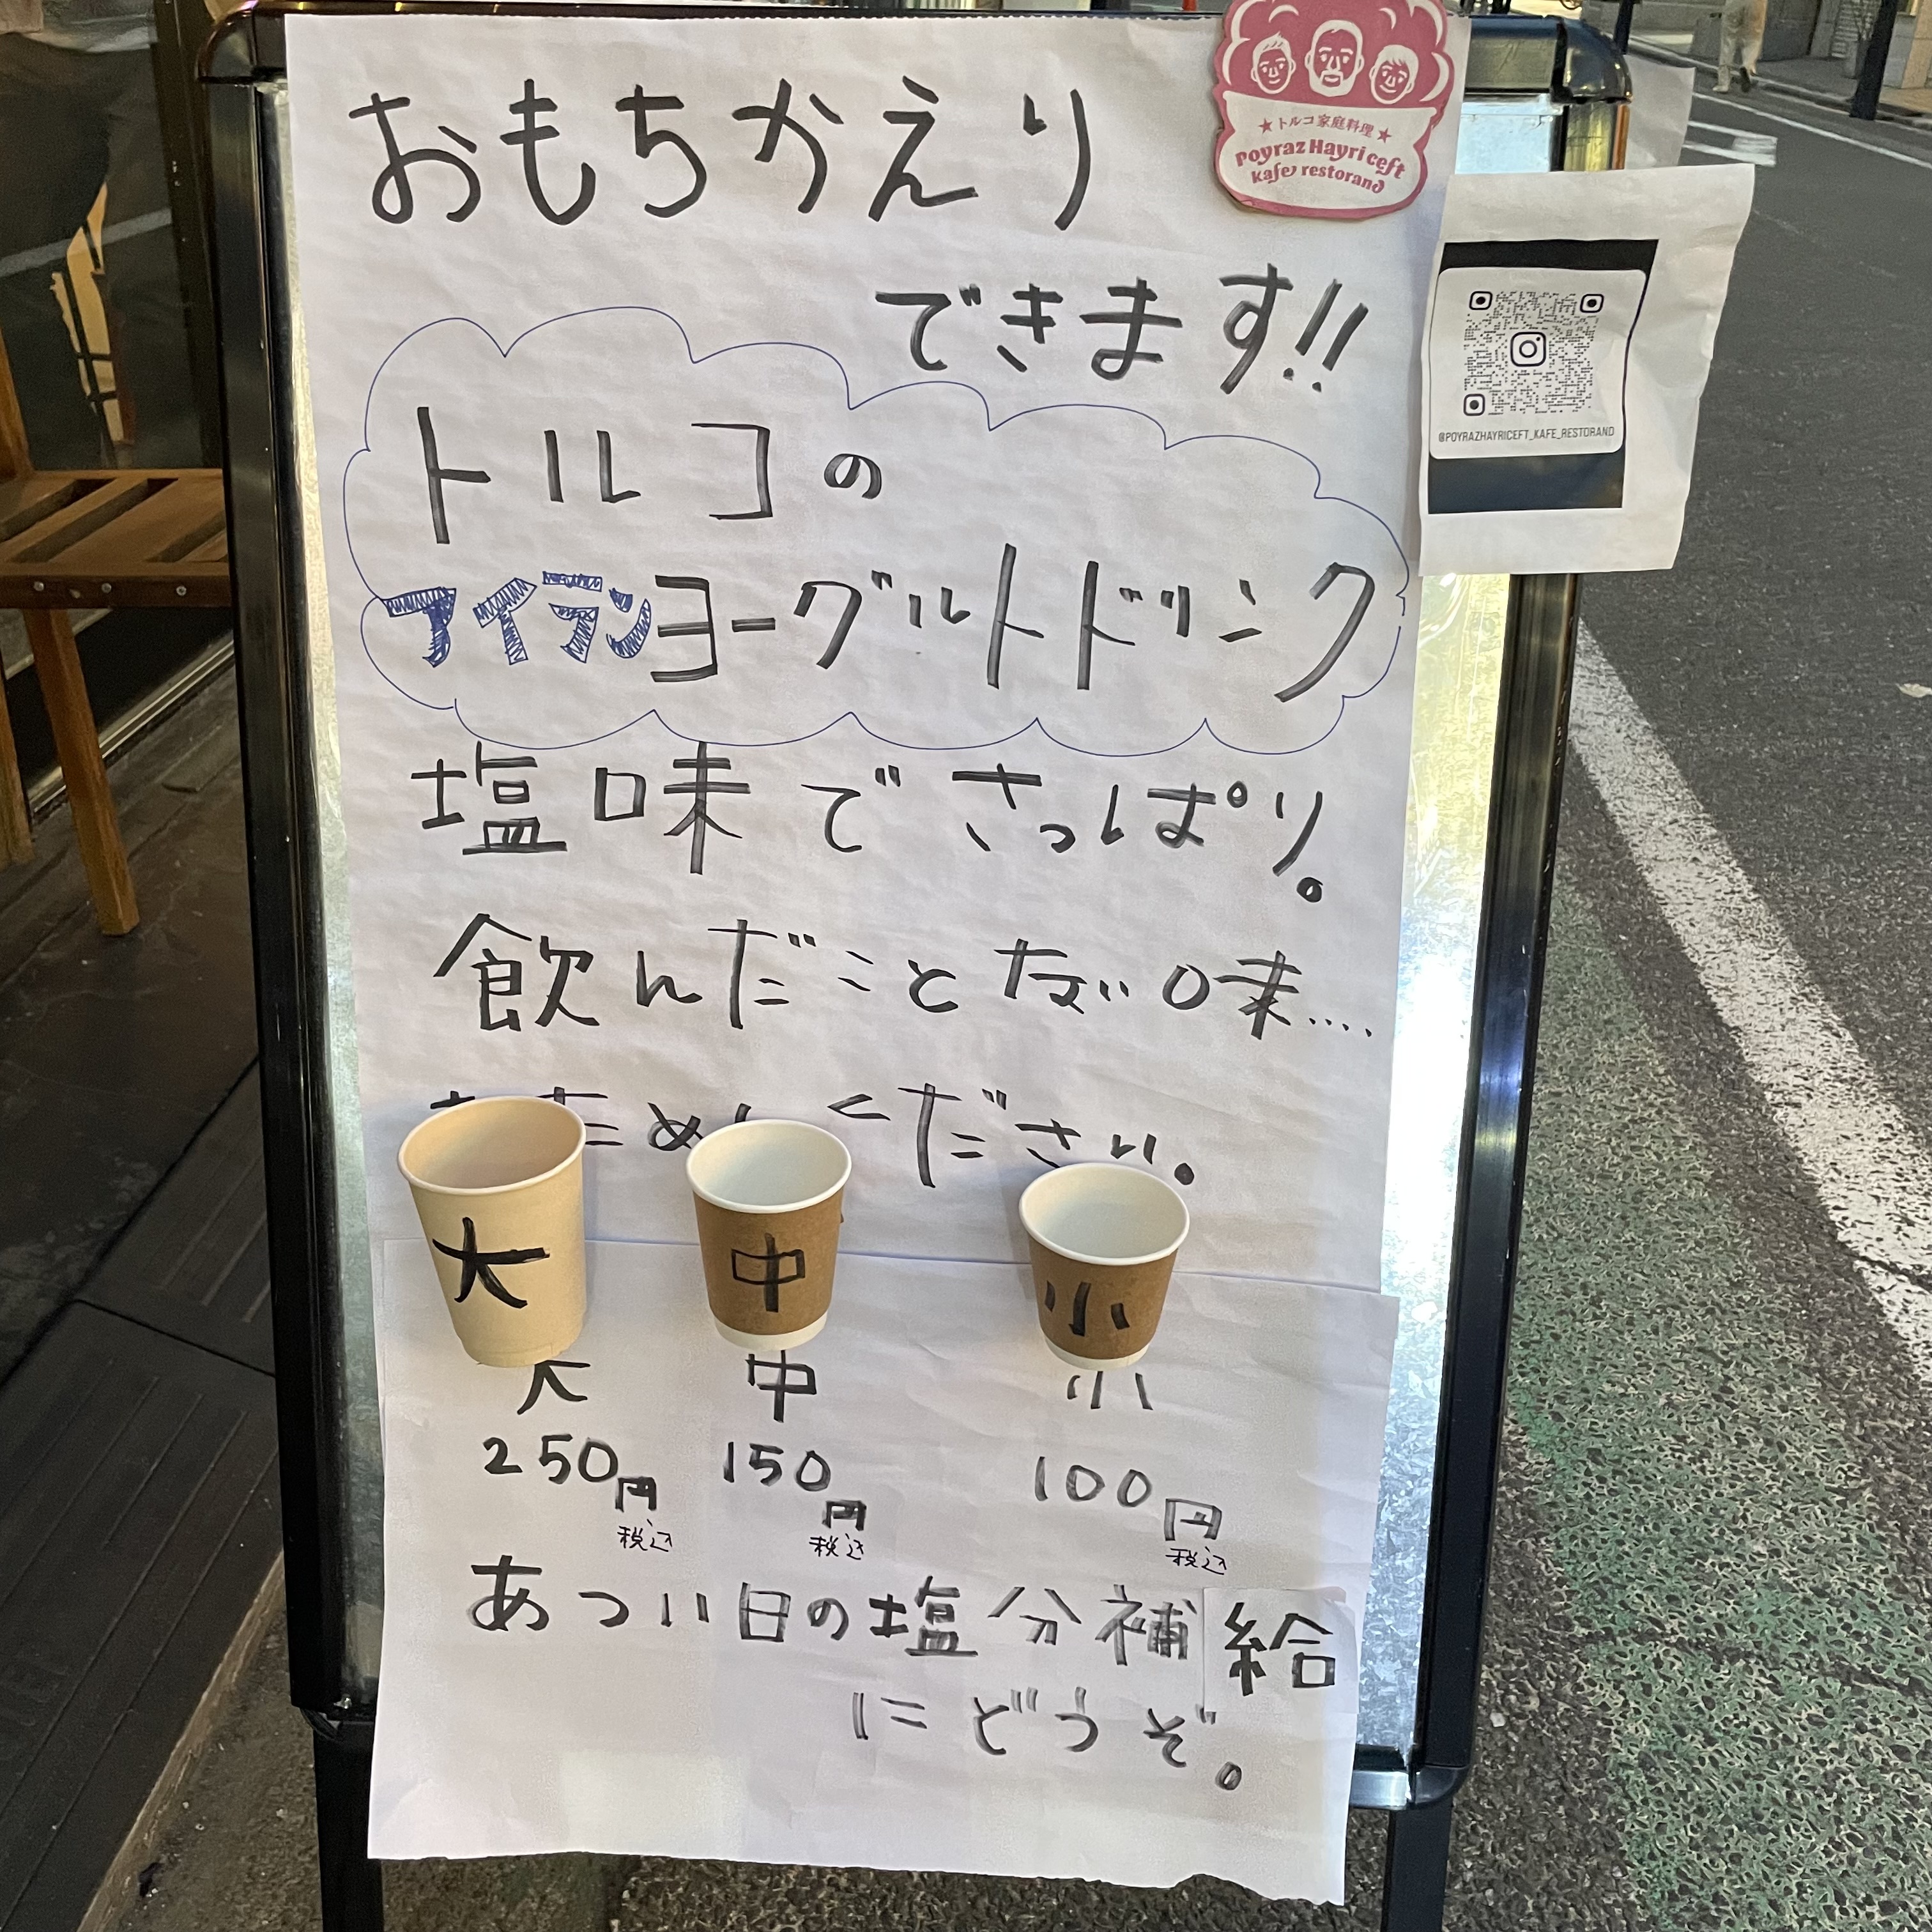 おもちかえり
できます!!
トルコの
アイランヨーグルトドリンク
塩味でさっぱり。
飲んだことない味....
ためしください。
大 中 小
大 中 小
250円 150円 100円
税込 税込 税込
あつい日の塩分補給
にどうぞ。
★トルコ家庭料理★
Poyraz Hayri ceft
kafe restorand
@POYRAZHAYRICEFT_KAFE_RESTORAND